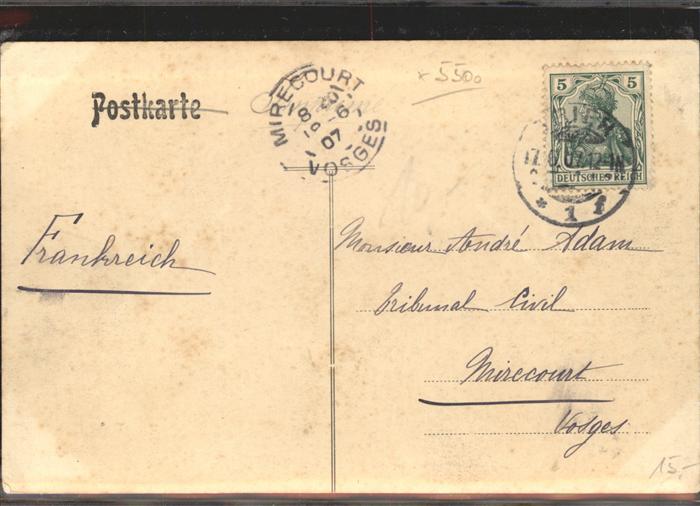 Postkarte
MIRECOURT
VOSGES
5500
5 5
DEUTSCHES REICH
Frankreich
Monsieur André Adam
Tribunal Civil
Mirecourt
Vosges
15,-